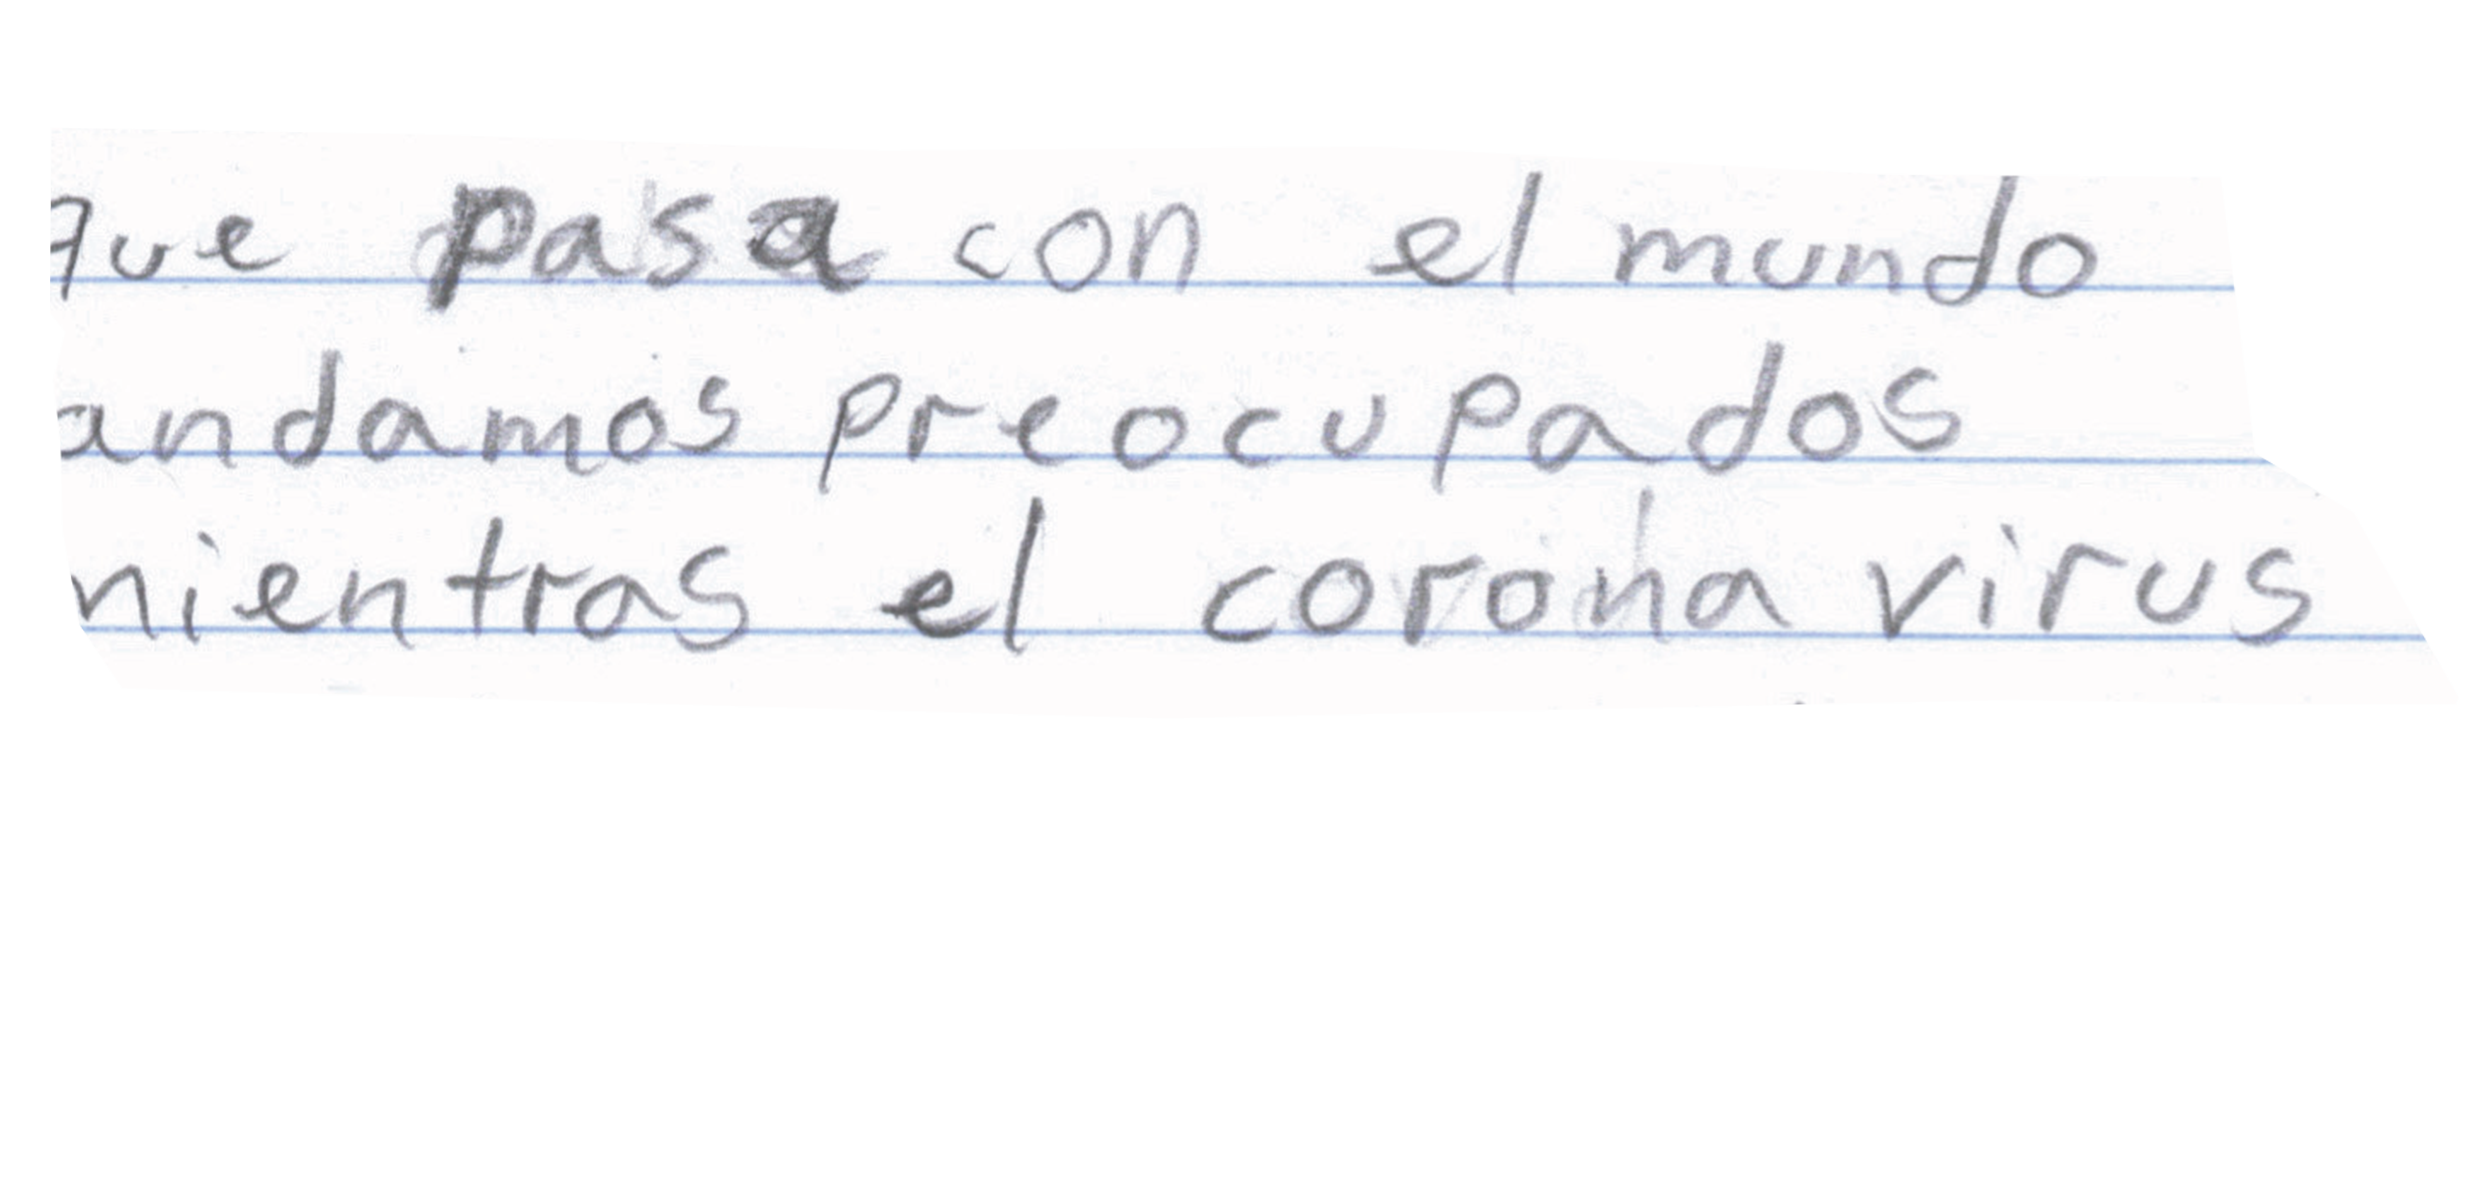 que pasa con el mundo
andamos preocupados
mientras el corona virus